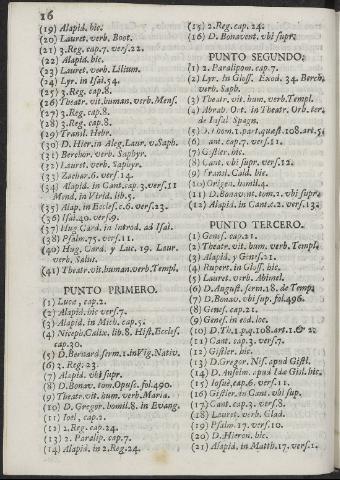 16
(19) Alapid. hic.
(20) Lauret. verb. Boot.
(21) 3. Reg. cap. 7. vers. 22.
(22) Alapid. hic.
(23) Lauret. verb. Lilium.
(24) Lyr. in Isai. 54.
(25) 3. Reg. cap. 8.
(26) Theatr. vit. human. verb. Mens.
(27) 3. Reg. cap. 8.
(28) 3. Reg. cap. 8.
(29) Transl. Hebr.
(30) D. Hier. in Aleg. Laur. v. Saph.
(31) Berchor. verb. Saphyr.
(32) Lauret. verb. Saphyr.
(33) Zachar. 6. vers. 14.
(34) Alapid. in Cant. cap. 3. vers. 11
Mend. in Virid. lib. 5.
(35) Alap. in Eccles. c. 6. vers. 23.
(36) Isai. 40. vers. 9.
(37) Hug. Card. in Introd. ad Isai.
(38) Psalm. 75. vers. 11.
(40) Hug. Card. 7 Luc. 19. Laur.
verb. Salus.
(41) Theatr. vit. human. verb. Templ.
PUNTO PRIMERO.
(1) Lucæ, cap. 2.
(2) Alapid. hic vers. 7.
(3) Alapid. in Mich. cap. 5.
(4) Niceph. Calix. lib. 8. Hist. Eccles.
cap. 30.
(5) D. Bernard. serm. 1. in Vig. Nativ.
(6) 2. Reg. 23.
(7) Alapid. vbi supr.
(8) D. Bonav. tom. Opusc. fol. 490.
(9) Theatr. vit. hum. verb. Maria.
(10) D. Gregor. homil. 8. in Evang.
(11) Ioel, cap. 2.
(12) 2. Reg. cap. 24.
(13) 2. Paralip. cap. 7.
(14) Alapid. in 2. Reg. 24.
(15) 2. Reg. cap. 24.
(16) D. Bonavent. vbi supr.
PUNTO SEGUNDO.
(1) 2. Paralipom. cap. 7.
(2) Lyr. in Gloss. Exod. 34. Berch.
verb. Saph.
(3) Theatr. vit. hum. verb. Templ.
(4) Abrah. Ort. in Theatr. Orb. ter.
de Insul. Spagn.
(5) D. Thom. 1. part. quæst. 108. art. 5.
(6) Cant. cap. 7. vers. 11.
(7) Gislier. hic.
(8) Cant. vbi supr. vers. 12.
(9) Transl. Cald. hic.
(10) Origen. homil. 4.
(11) D. Bonavent. tom. 2. vbi supr.
(12) Alapid. in Cant. c. 2. vers. 13.
PUNTO TERCERO.
(1) Genes. cap. 21.
(2) Theatr. vit. hum. verb. Templ.
(3) Alapid. 7 Genes. 21.
(4) Rupert. in Gloss. hic.
(5) Lauret. verb. Abimel.
(6) D. August. serm. 18. de Temp.
(7) D. Bonav. vbi sup. fol. 496.
(8) Genes. cap. 21.
(9) Genes. in eod. loc.
(10) D. Th. 1. p. q. 108. art. 1. & 2.
(11) Cant. cap. 3. vers. 7.
(12) Gislier. hic.
(13) D. Gregor. Nis. apud Gisl.
(14) D. Anselm. apud Gisl. hic.
(15) Iosuè, cap. 6. vers. 11.
(16) Gislier. in Cant. vbi sup.
(17) Cant. cap. 3. vers. 8.
(18) Lauret. verb. Glad.
(19) Psalm. 17. vers. 10.
(20) D. Hieron. hic.
(21) Alapid. in Matth. 17. vers. 1.